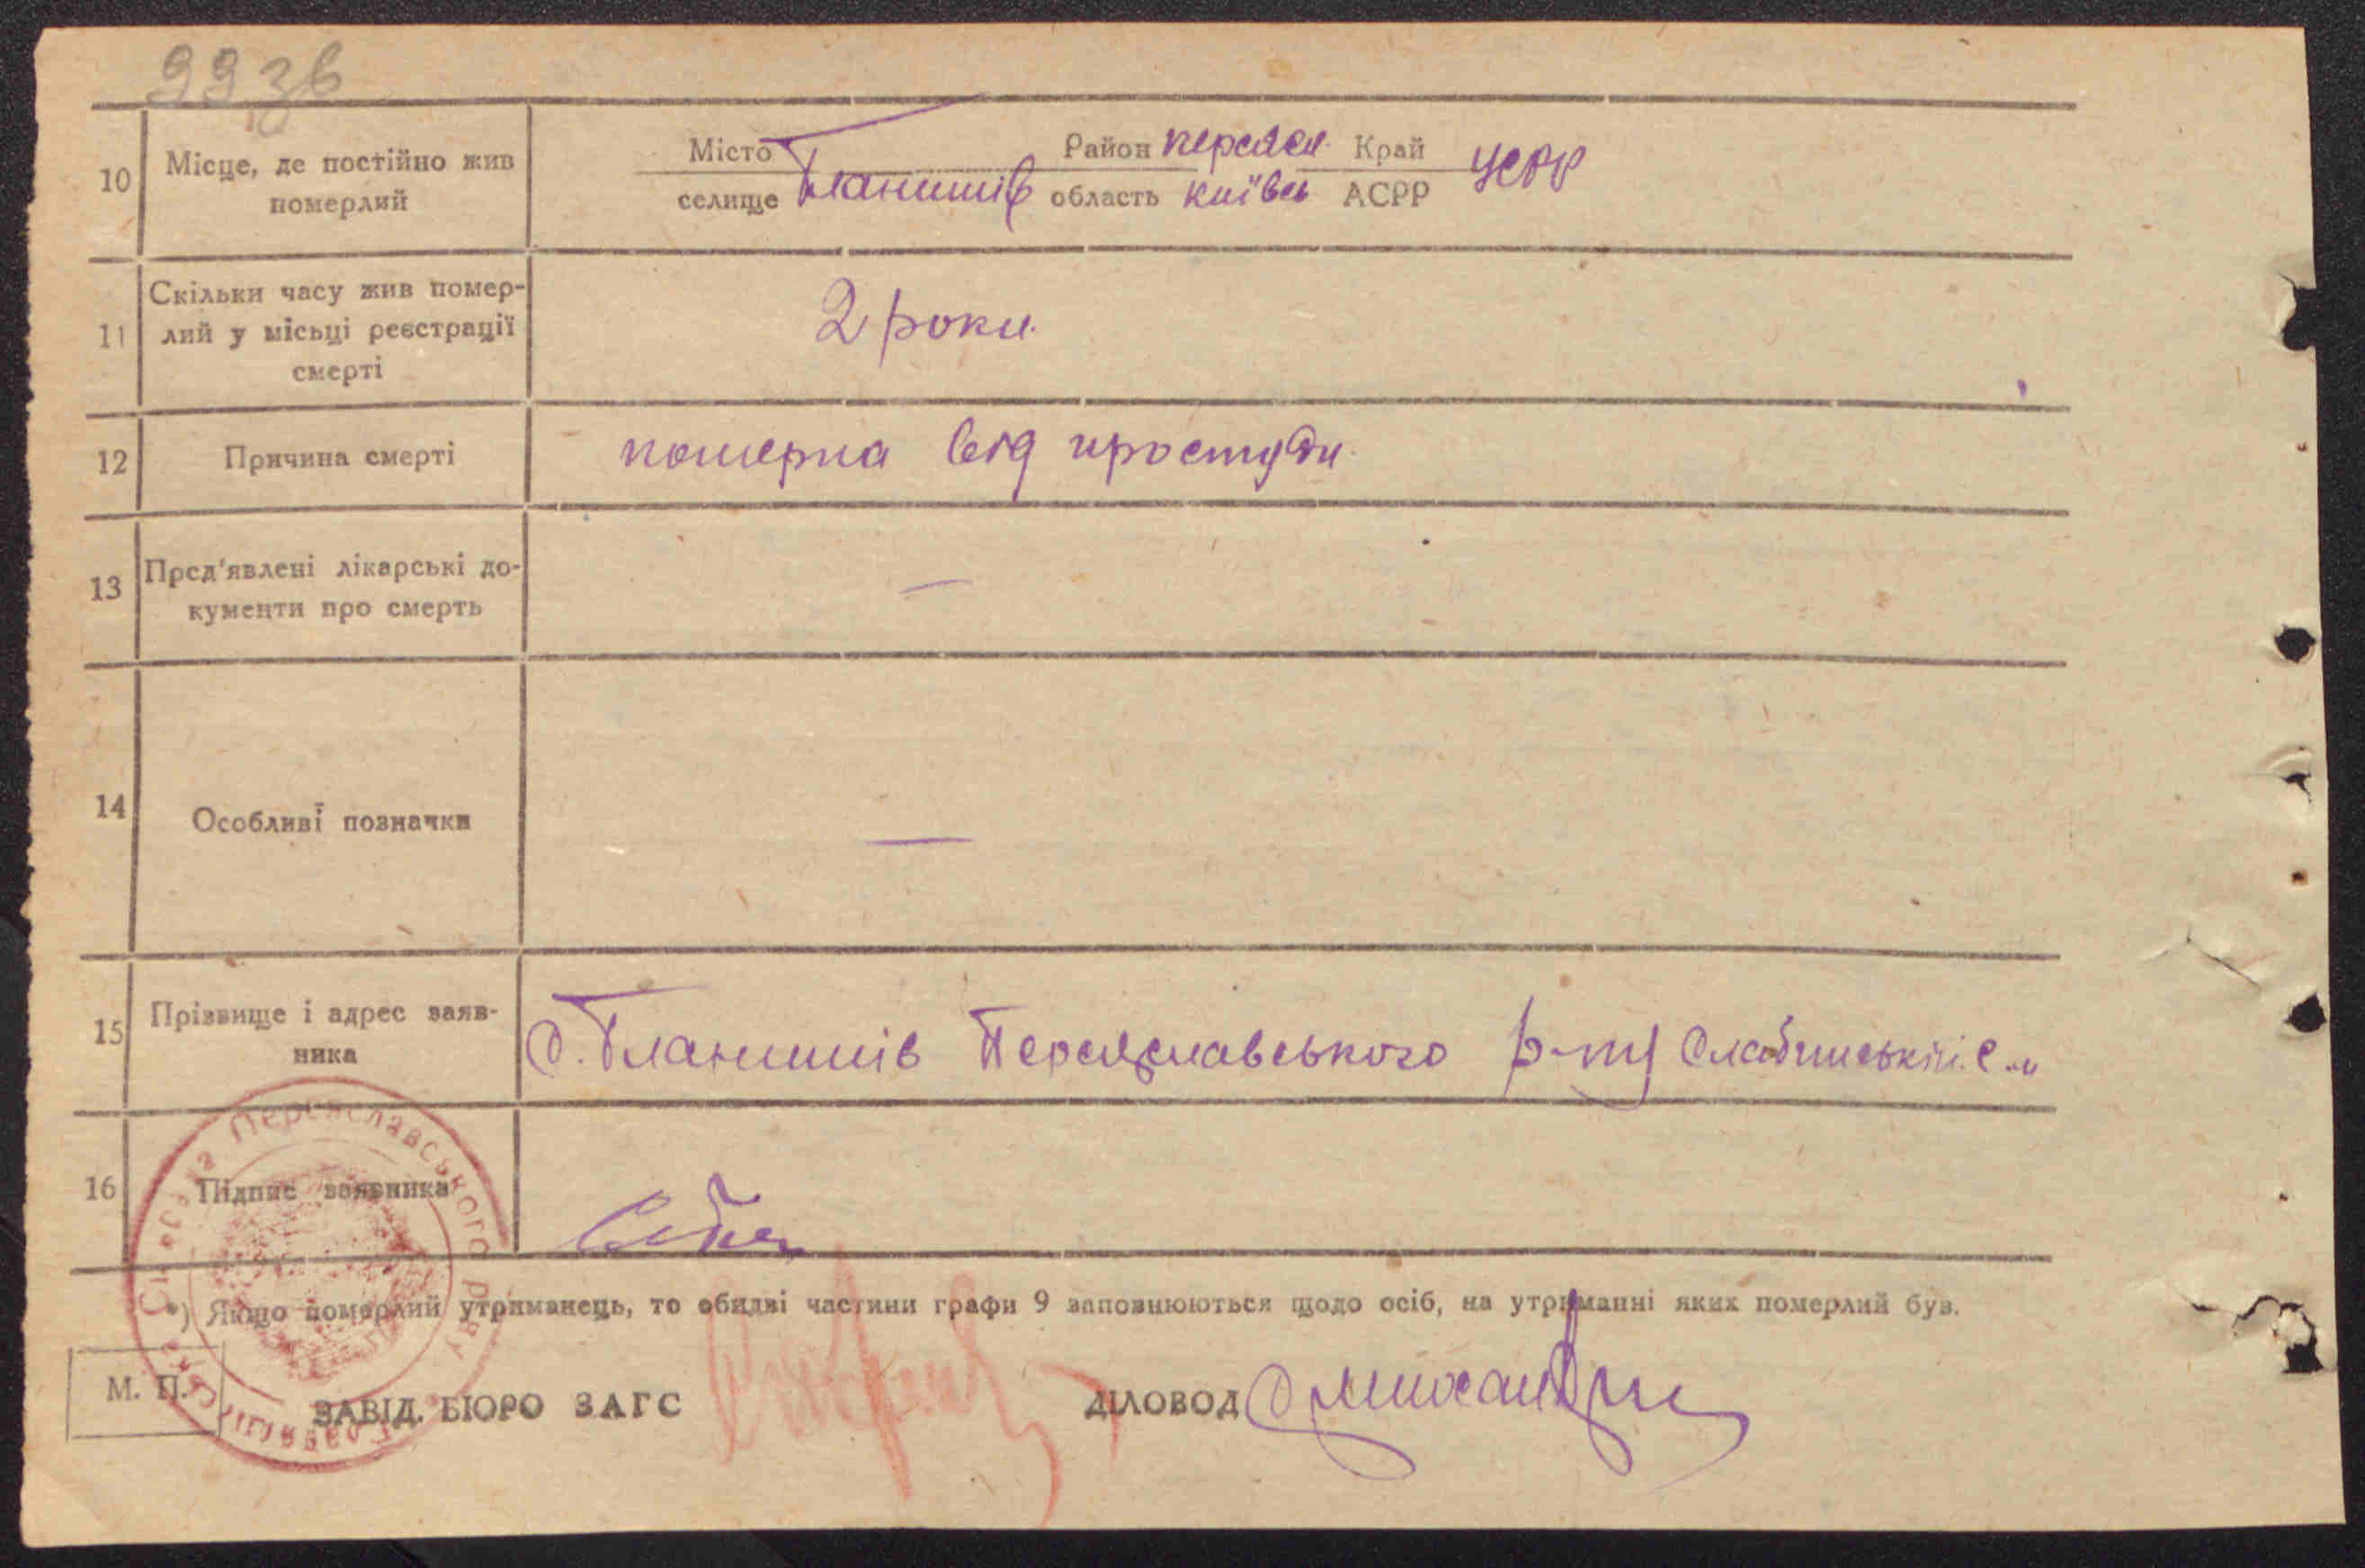 99 зв
10 Місце, де постійно жив померлий
Місто Район Переясл. Край УСРР
селище Гланишів область Київсь АСРР
11 Скільки часу жив помер-
лий у місьці реєстрації
смерті
2 роки.
12 Причина смерті
померла від простуди.
13 Пред'явлені лікарські до-
кументи про смерть
—
14 Особливі позначки
—
15 Прізвище і адрес заяв-
ника
с. Гланишів Переяславського р-ну
16 Підпис заявника
*) Якщо померлий утриманець, то обидві частини графи 9 заповнюються щодо осіб, на утриманні яких померлий був.
М. П.
ЗАВІД. БЮРО ЗАГС
ДІЛОВОД
Переяславського р-ну